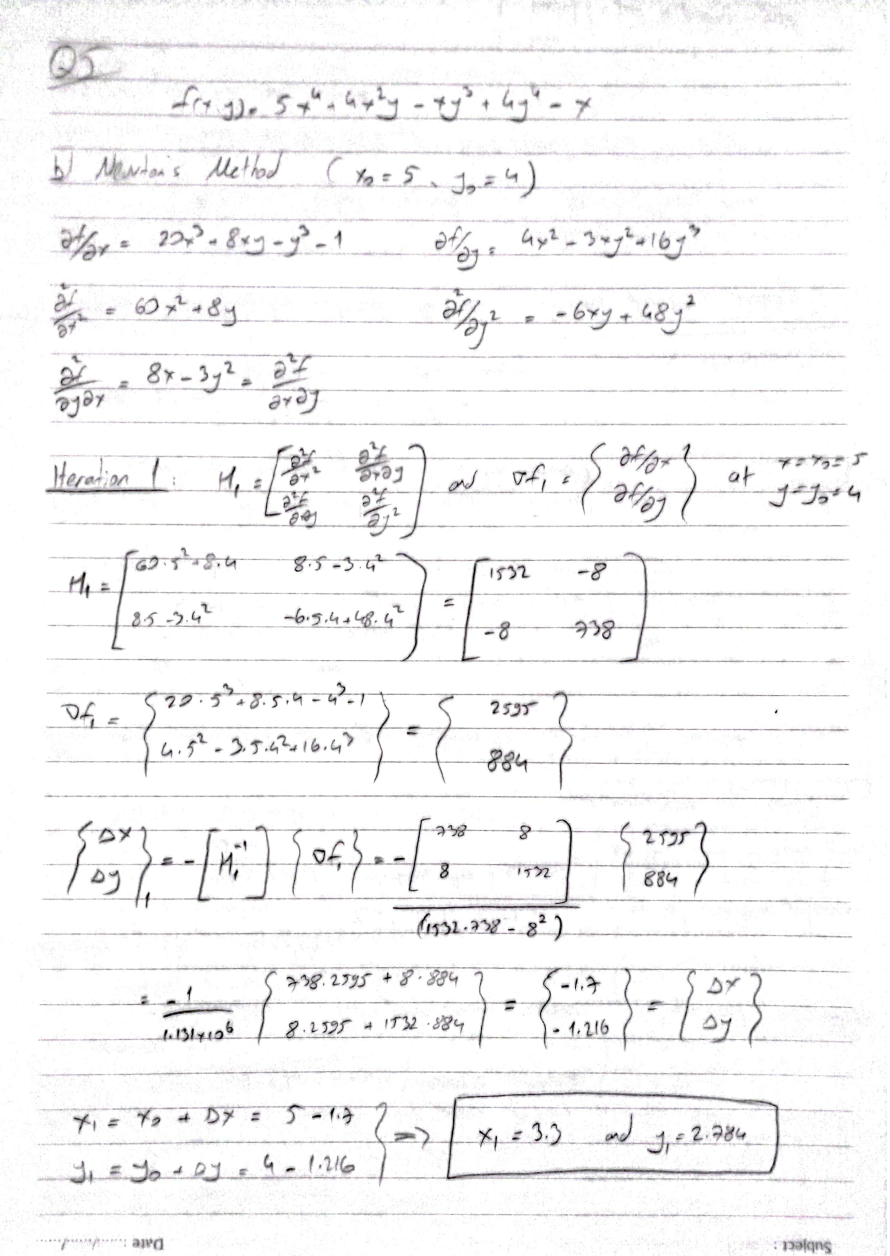 Q5
f(x,y) = 5x⁴ + 4x²y - xy³ + 4y⁴ - x
b) Newton's Method (x₀ = 5, y₀ = 4)
∂f/∂x = 20x³ + 8xy - y³ - 1 ∂f/∂y = 4x² - 3xy² + 16y³
∂²f/∂x² = 60x² + 8y ∂²f/∂y² = -6xy + 48y²
∂²f/∂y∂x = 8x - 3y² = ∂²f/∂x∂y
Iteration 1: H₁ = [∂²f/∂x² ∂²f/∂x∂y; ∂²f/∂x∂y ∂²f/∂y²] and ∇f₁ = {∂f/∂x; ∂f/∂y} at x = x₀ = 5 y = y₀ = 4
H₁ = [60·5² + 8·4 8·5 - 3·4²; 8·5 - 3·4² -6·5·4 + 48·4²] = [1532 -8; -8 738]
∇f₁ = {20·5³ + 8·5·4 - 4³ - 1; 4·5² - 3·5·4² + 16·4³} = {2595; 884}
{Δx; Δy}₁ = -[H₁⁻¹] {∇f₁} = -[738 8; 8 1532] {2595; 884}
(1532·738 - 8²)
= -1/1.131×10⁶ {738·2595 + 8·884; 8·2595 + 1532·884} = {-1.7; -1.216} = {Δx; Δy}
x₁ = x₀ + Δx = 5 - 1.7 } => x₁ = 3.3 and y₁ = 2.784
y₁ = y₀ + Δy = 4 - 1.216
Subject : Date : ....../....../......